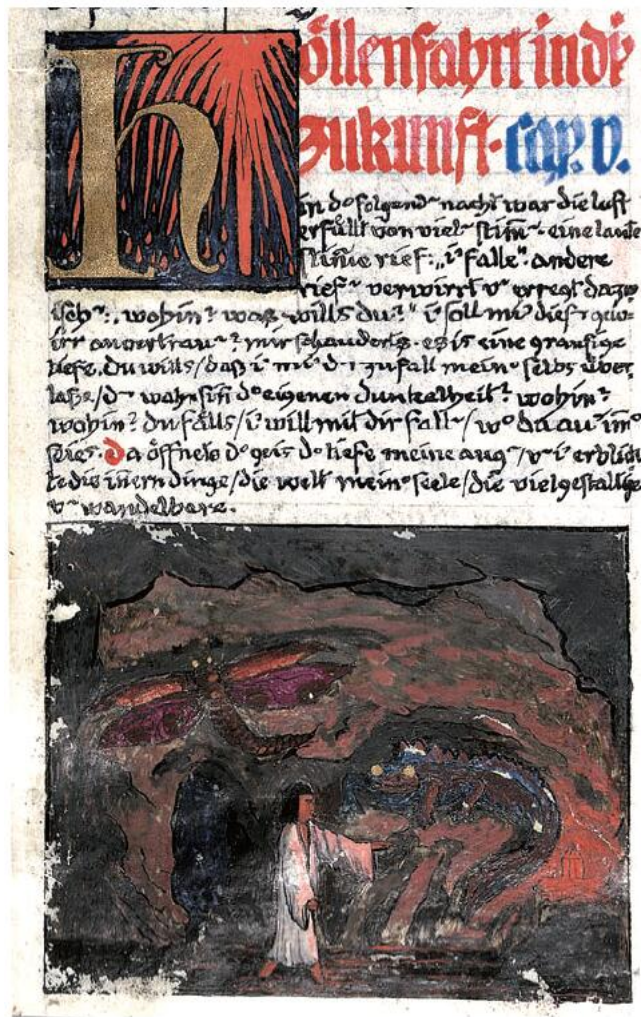 höllenfahrt in die
Zukunft. cap. v.
in d° folgend~ nacht war die luft
erfüllt von viel~ stim̃~. eine laute
stim̃e rief: „i' falle". andere
rief~ verwirrt v~ erregt dazw
isch~: „wohin? was wills du?" i' soll mi' dies~ gew-
irr anvertrau~? mir schauderts. es is eine grausige
tiefe. du wills/daß i' mi' d~ zufall mein° selbs über
laße/d~ wahnsiñ d° eigenen dunkelheit? wohin?
wohin? du fälls/i' will mit dir fall~/w° da au' im̃°
seies. Da öffnete d° geis d° tiefe meine aug~/v~ i' erblick
te die iñern dinge/die welt mein° seele/die vielgestaltige
v~ wandelbare.